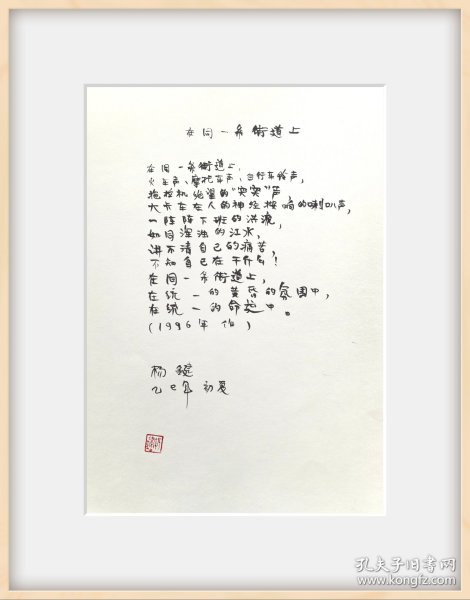 在同一条街道上
在同一条街道上,
火车声、摩托车声、自行车铃声,
拖拉机绝望的“突突”声,
大卡车在人的神经按响的喇叭声,
一阵阵下班的洪流,
如同浑浊的江水,
讲不清自己的痛苦,
不知自己在干什么!
在同一条街道上,
在统一的黄昏的氛围中,
在统一的命运中。
(1996年作)
杨键
乙巳年初夏
孔夫子旧书网
www.kongfz.com